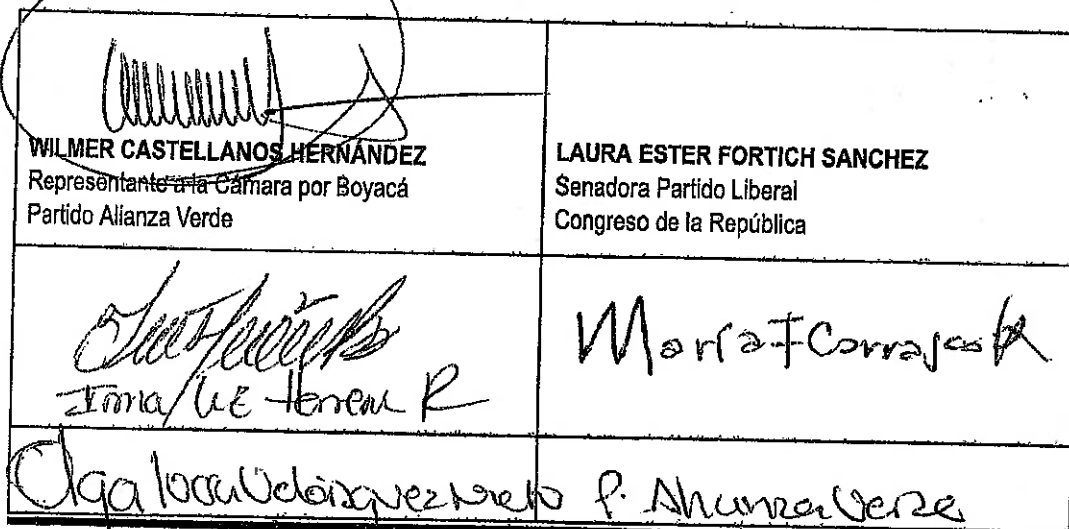 WILMER CASTELLANOS HERNÁNDEZ
Representante a la Cámara por Boyacá
Partido Alianza Verde
LAURA ESTER FORTICH SANCHEZ
Senadora Partido Liberal
Congreso de la República
Irma Luz Herrera R
María F Carrascal R
Olga Lucía Velásquez Nieto P. Alianza Verde